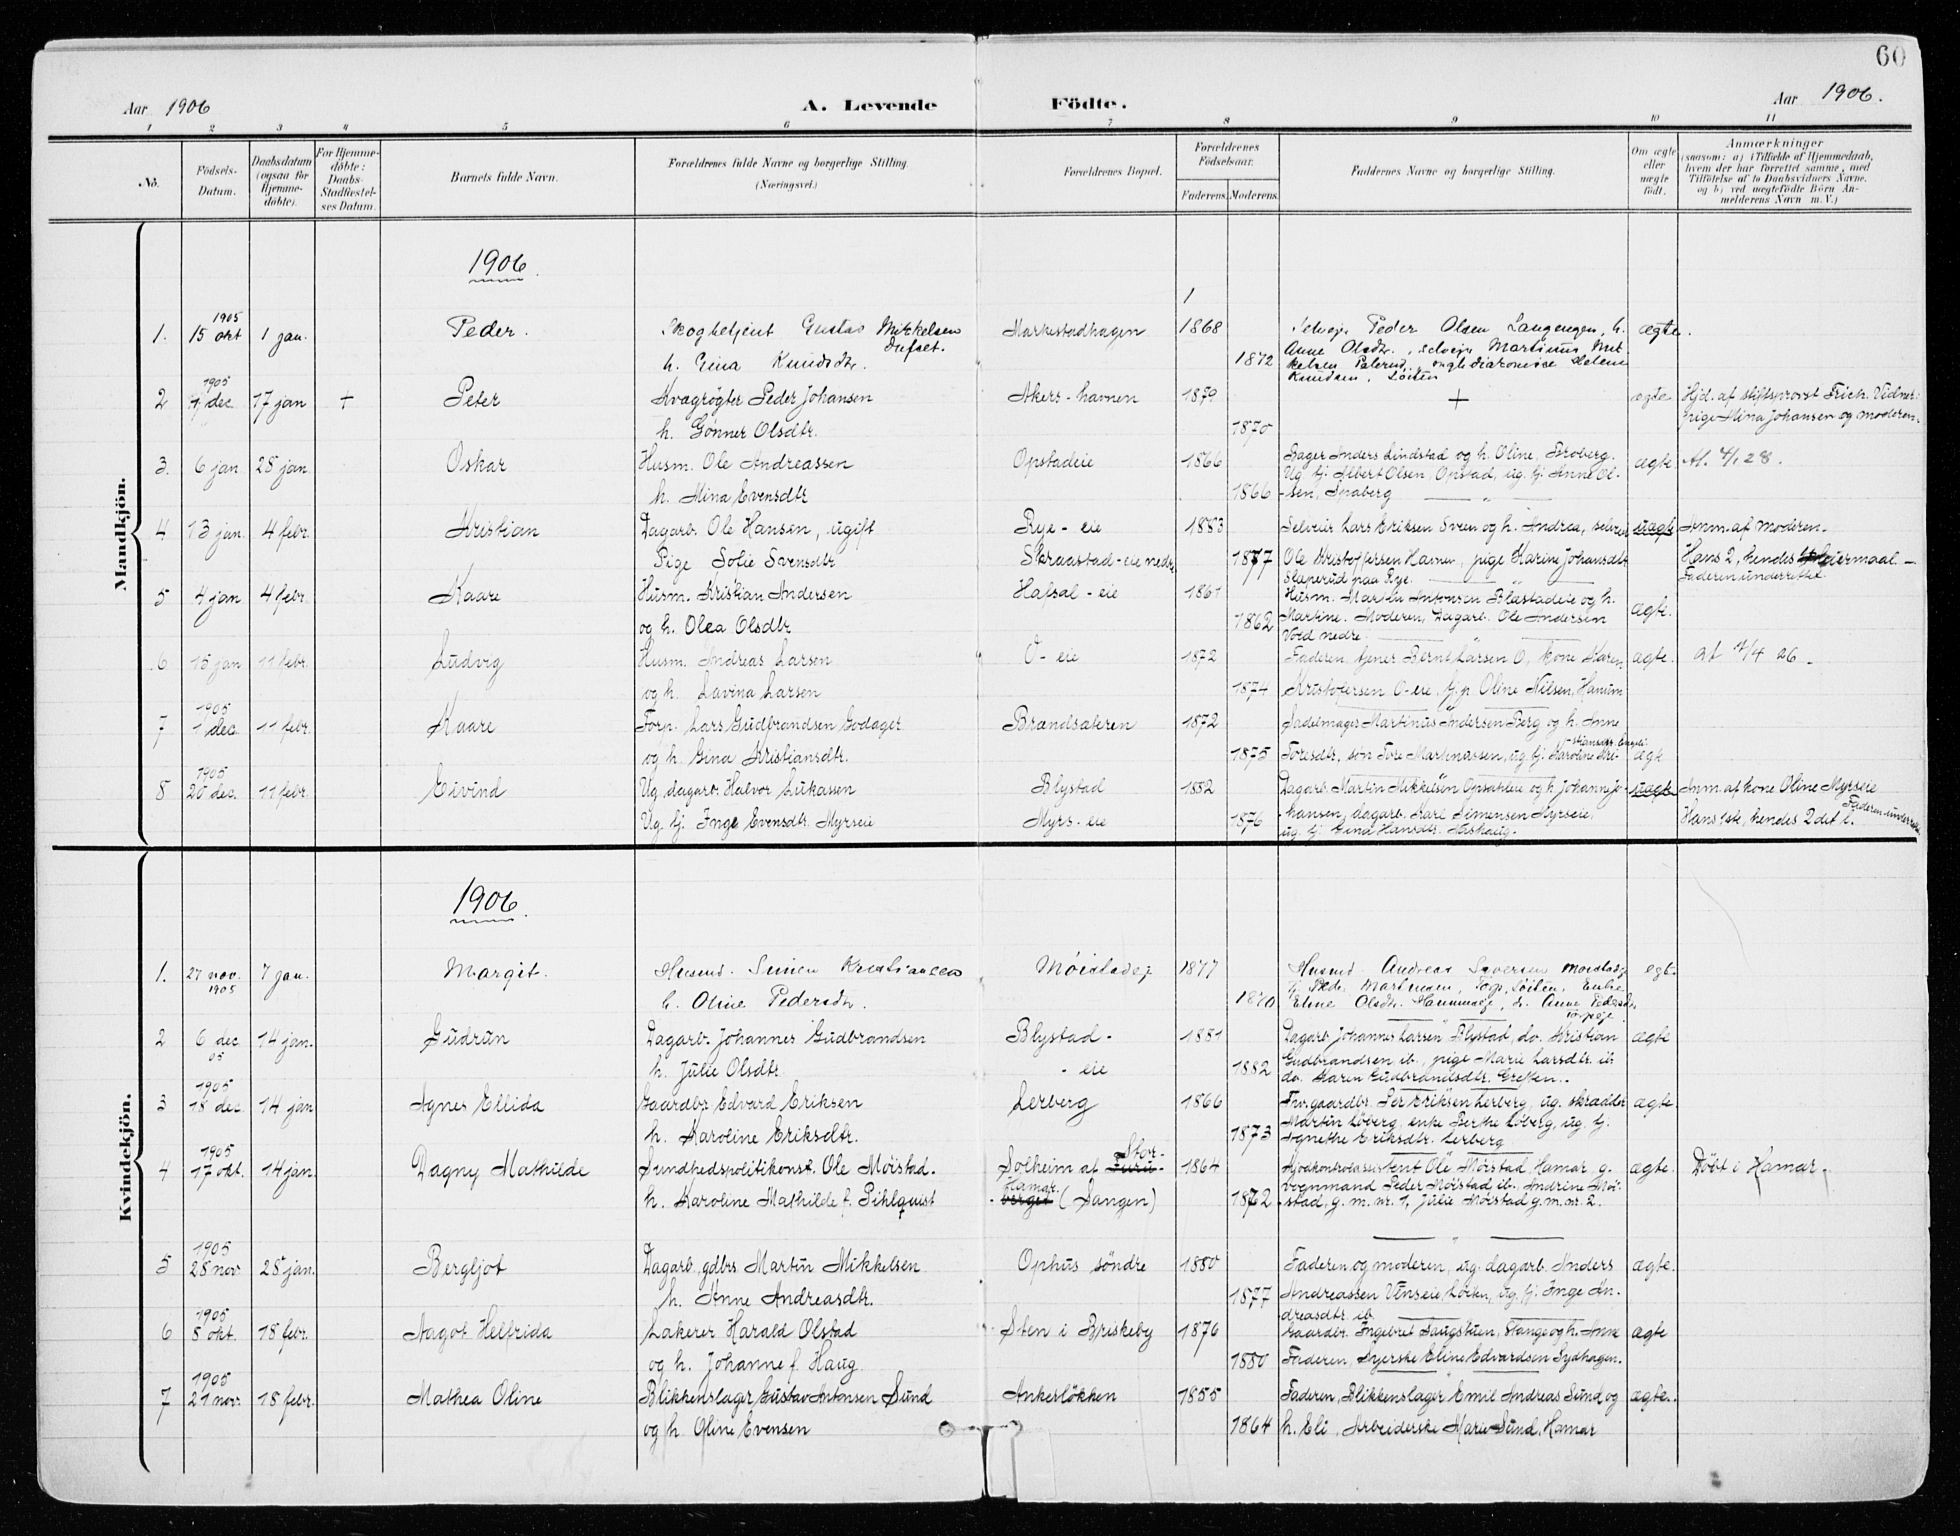 60
Aar 1906 A. Levende Födte. Aar 1906.
1 2 3 4 5 6 7 8 9 10 11
No. Födsels-Datum. Daabsdatum (ogsaa for Hjemme-döbte). For Hjemme-döbte: Daabs-Stadfæstel-ses Datum. Barnets fulde Navn. Forældrenes fulde Navne og borgerlige Stilling. (Næringsvei.) Forældrenes Bopæl. Forældrenes Födselsaar. Faderens. Moderens. Faddernes Navne og borgerlige Stilling. Om ægte eller uægte födt. Anmærkninger (saasom: a) i Tilfælde af Hjemmedaab, hvem der har forrettet samme, med Tilföielse af to Daabsvidners Navne, og b) ved uægtefödte Börn An-melderens Navn m. V.)
Mandkjön.
1906.
1
1905
1. 15 okt 1 jan. Peder. Skogbetjent Gustav Mikkelsen Markestadhagen 1868 Selvejer Peder Olsen Langengen, h. ægte.
h. Gina Knudsdtr. 1872 Anne Olsdtr., selvejer Martinus Mik-
kelsen Palerud, diakonisse Helene
Knudsen, Löiten
1905
2 1 dec. 17 jan + Peter Kvægrøgter Peder Johansen Akers-havnen 1879 + ægte Hjd. af stiftsprovst Frich. Vidner:
h. Gönner Olsdtr. 1870 pige Mina Johansen og moderen.
3. 6 jan 28 jan. Oskar Husm. Ole Andreassen Opstadeie 1866 Bager Anders Lindstad og h. Oline, Broberg. ægte
Ug. tj. Albert Olsen, Opstad, ug. tj. Anne Ol-
h. Mina Evensdtr 1866 -sen, Snaberg
4 13 jan. 4 febr. Kristian Dagarb. Ole Hansen, ugift Rye-eie 1883 Selveier Lars Eriksen Sveen og h. Andrea, uægte Anm. af moderen.
Pige Sofie Svensdtr Skraastad-eie nedre 1877 Ole Kristoffersen Havnen, pige Karine Johansdtr Hans 2, hendes leiermaal -
Slaperud paa Rye. Faderen underrettet.
5 4 jan 4 febr. Kaare Husm. Kristian Andersen Hafsal-eie 1861 Husm. Martin Antonsen Blæstadeie og h. ægte.
og h. Olea Olsdtr 1862 Martine. Moderen, Dagarb. Ole Andersen
Vold nedre
6 15 jan 11 febr. Ludvig Husm. Andreas Larsen O-eie 1872 Faderen, tjener Bernt Larsen O, kone Karen ægte.
og h. Lavina Larsen 1874 Kristofersen O-eie, tj. p. Oline Nilsen, Hanum
1905
7 1 dec. 11 febr. Kaare Forp. Lars Gudbrandsen Godager Brændsæteren 1872 Sadelmager Martinus Andersen Berg og h. Anne
og h. Gina Kristiansdtr. 1875 Toresdtr, søn Tore Martinussen, ug. tj. Karoline Kri- ægt
1905
8 20 dec. 11 febr. Eivind Ug. dagarb. Halvor Lukassen Blystad 1882 Dagarb. Martin Mikkelsen Opsahleie og h. Johanne Jo- uægte Anm. af kone Oline Myrseie
Ug. tj. Inge Evensdtr. Myrseie Myrs-eie 1876 -hansen, dagarb. Karl Simensen Myrseie, Hans 1ste, hendes 2det l. Faderen underrettet.
ug. tj. Gina Hansdtr.
Kvindekjön.
1906.
1. 27 nov. 7 jan. Margit. Husmd. Simen Kristiansen Möistadej 1877 Husmd. Andreas Syversen Möistadej egt.
1905
h. Oline Pedersdtr. 1870 Eline Olsdtr.
2 6 dec 14 jan. Gudrun Dagarb. Johannes Gudbrandsen Blystad- 1881 Dagarb. Johannes Larsen Blystad, do. Kristian ægte
05
h. Julie Olsdtr - eie 1882 Gudbrandsen ib., pige Marie Larsdtr. ib
do. Karen Gudbrandsdtr. Greften.
1905
3 18 dec. 14 jan Agnes Ellida Gaardbr. Edvard Eriksen Lerberg 1866 Fhv. gaardbr. Per Eriksen Lerberg, ug. skrædder ægte.
h. Karoline Eriksdtr. 1873 Martin Löberg, enke Berthe Löberg, ug. tj.
Agnethe Eriksdtr. Lerberg
1905
4 17 okt. 14 jan. Dagny Mathilde Sundhedspolitikonst. Ole Möistad. Solheim af Stor- 1864 Ole Möistad, Hamar, g. ægte. Döbt i Hamar.
h. Karoline Mathilde f. Pihlquist Hamar (Vangen) 1872 vognmand Peder Möistad, ib. Andrine Möi-
-stad, g. m. nr. 1, Julie Möistad g. m. nr. 2.
1905
5 28 nov 28 jan. Bergljot Dagarb. gdbrs. Martin Mikkelsen Ophus söndre 1880 Faderen og moderen, ug. dagarb. Anders ægte.
h. Anne Andreasdtr. 1877 Andreassen Vinseie Löiten, ug. tj. Inge An-
dreasdtr. ib.
1905
6 8 okt. 18 febr. Aagot Helfrida Lakerer Harald Olstad Sten i Briskeby 1876 Gaardbr. Ingebret Haugstuen, Stange og h. Anne ægte
og h. Johanne f. Haug. 1880 Faderen, Syerske Eline Edvardsen Sydhagen.
1905
7 21 nov. 18 febr. Mathea Oline Blikkenslager Gustav Antonsen Sund Ankerlökken 1855 Faderen, Blikkenslager Emil Andreas Sund og ægte.
og h. Oline Evensen 1864 h. Eli, Arbeiderske Marie Sund, Hamar